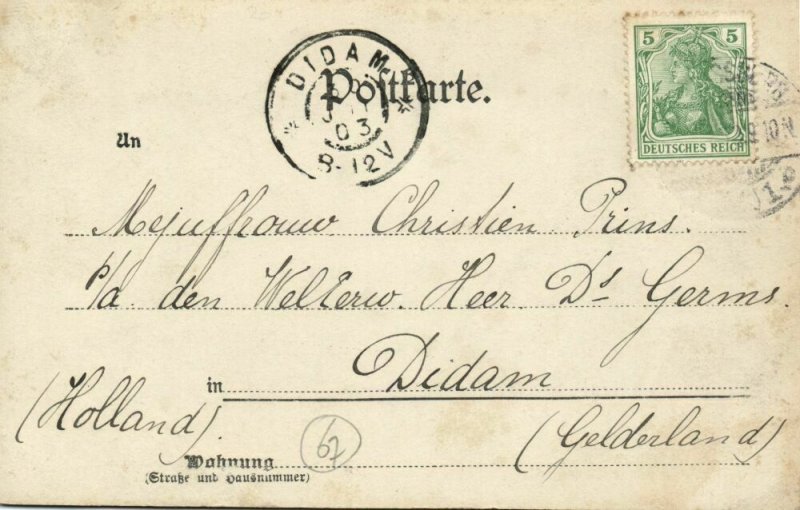 DIDAM
03
8-12V
Postkarte.
5 5
DEUTSCHES REICH
An
Mejuffrouw Christien Prins.
p/a. den WelEerw. Heer Ds Germs.
in Didam
(Holland).
(Gelderland)
67
Wohnung
(Straße und Hausnummer)